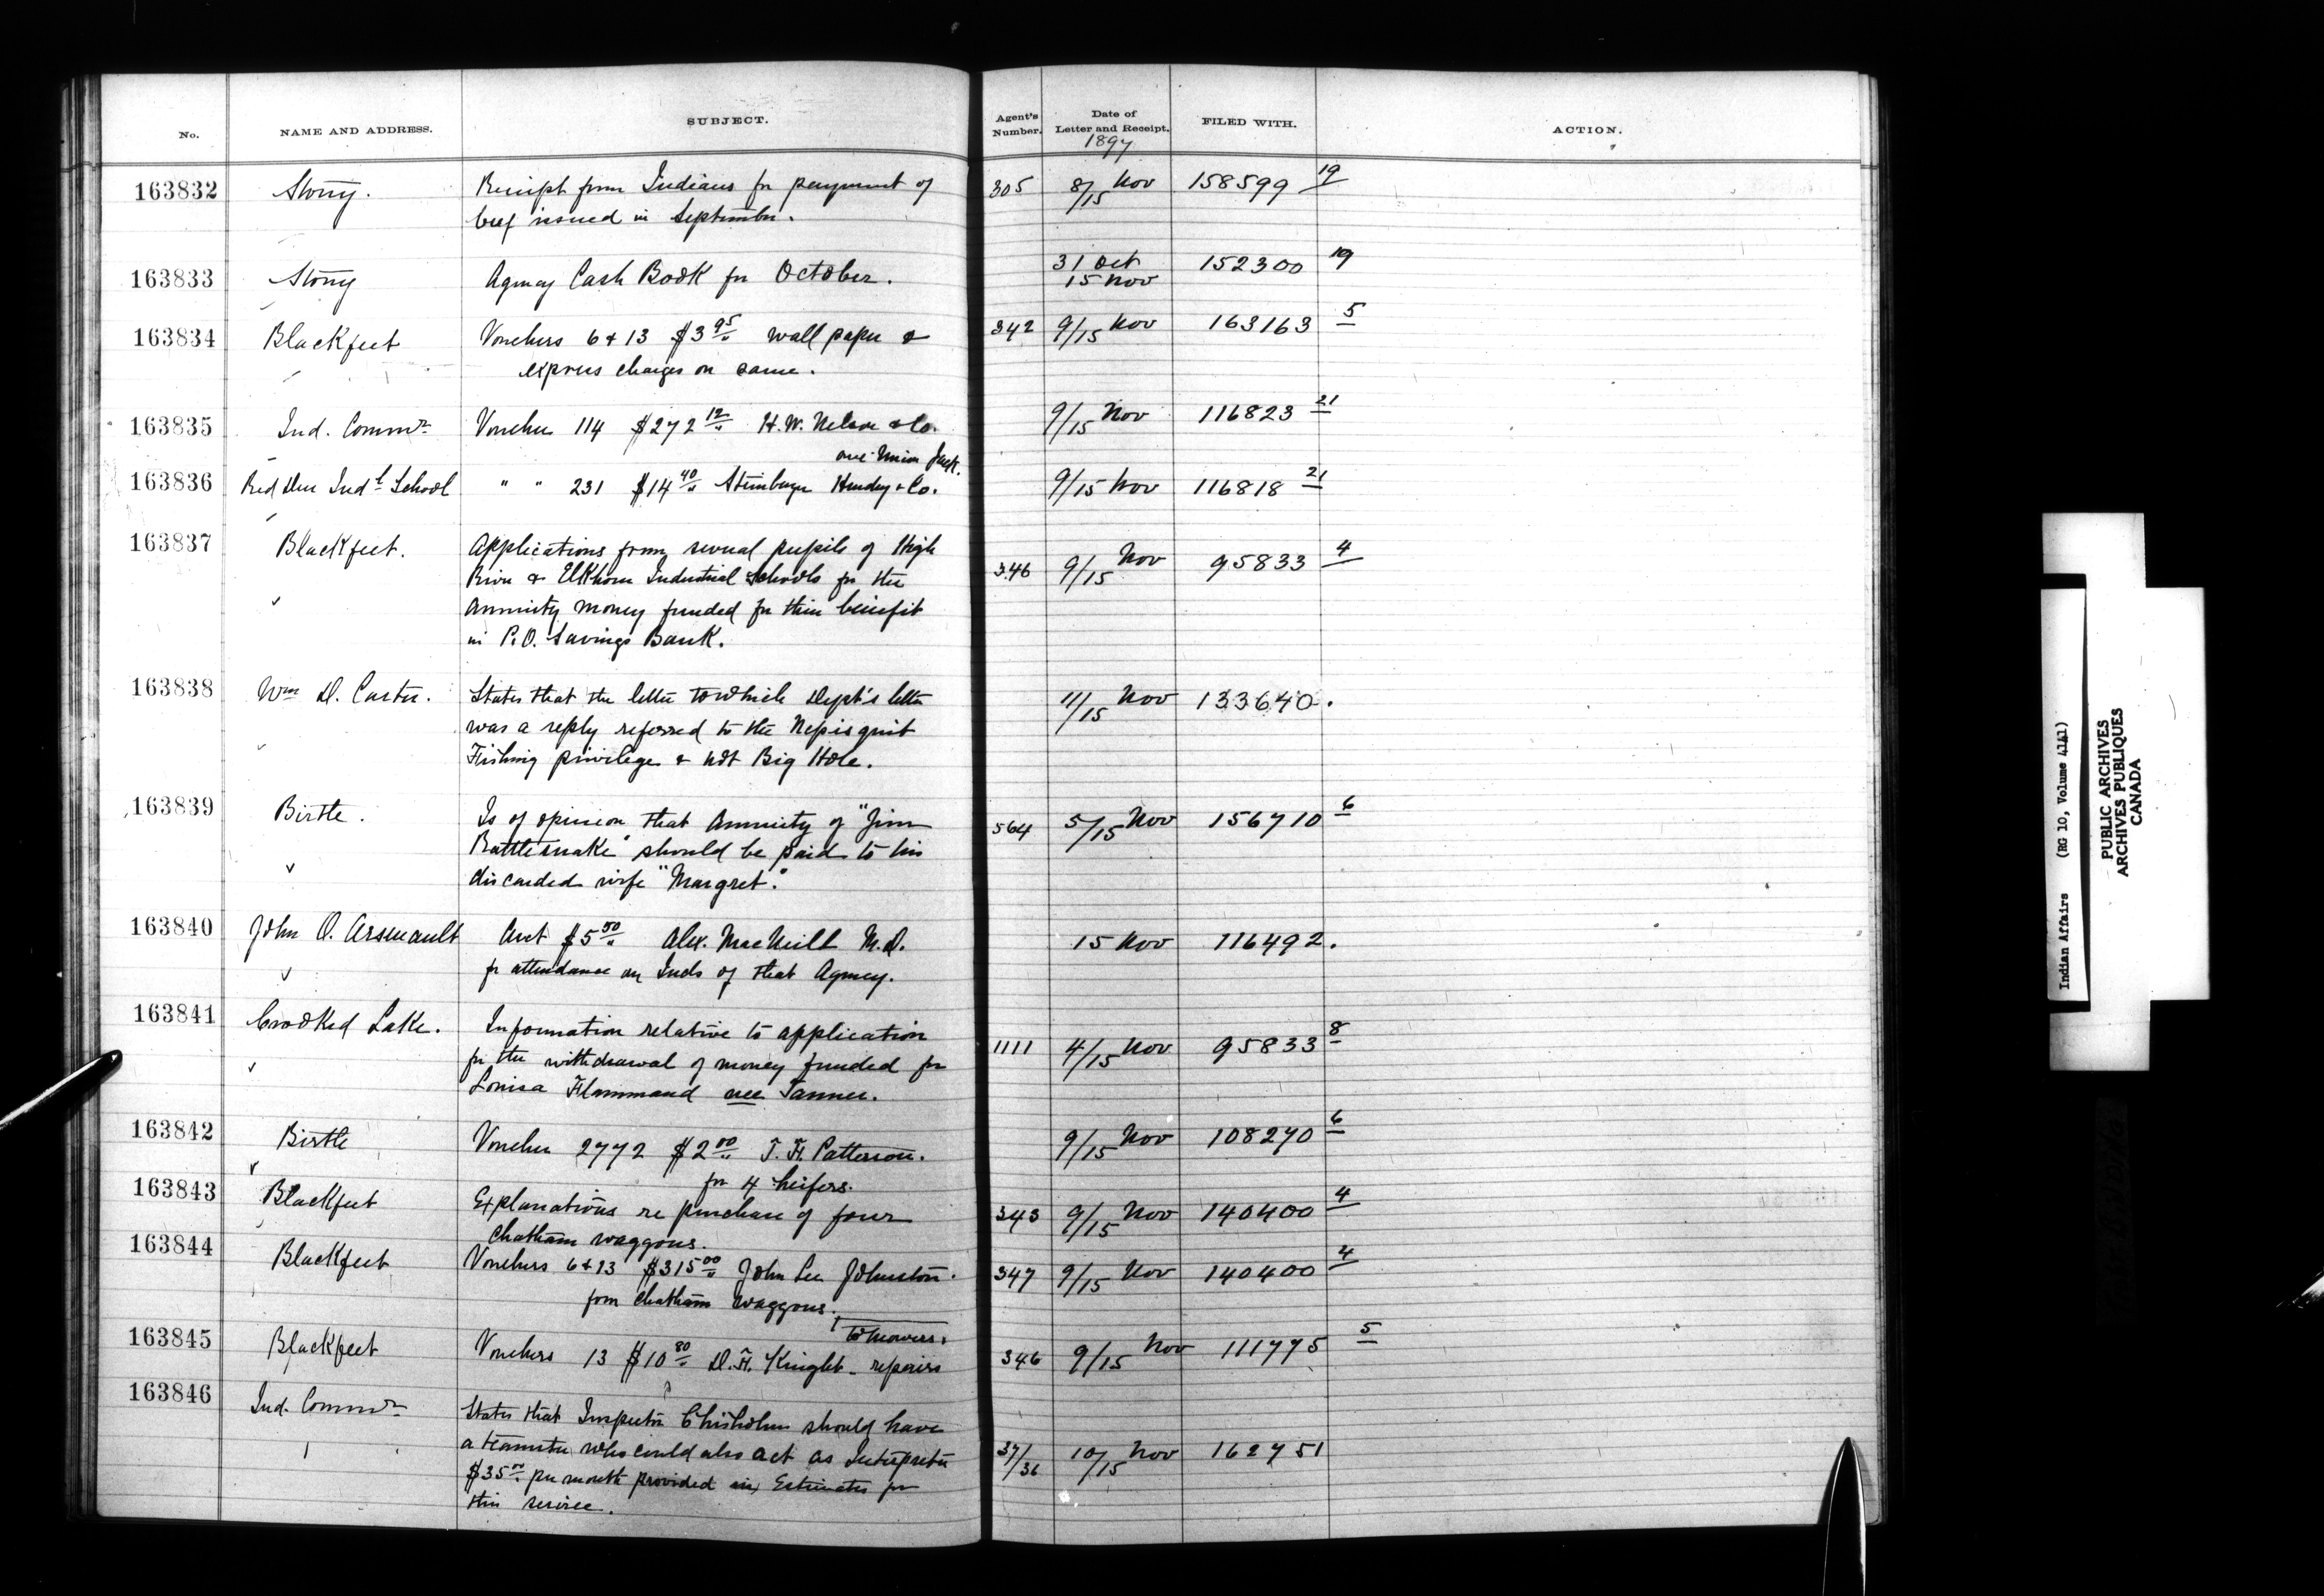 No. NAME AND ADDRESS. SUBJECT. Agent's Number. Date of Letter and Receipt. FILED WITH. ACTION.
1897
163832 Stony. Receipt from Indians for payment of 305 8/15 Nov 158599 19
beef issued in September.
163833 Stony Agency Cash Book for October. 31 Oct 152300 19
15 Nov
163834 Blackfeet Vouchers 6 & 13 $3 95 wall paper & 342 9/15 Nov 163163 5
express charges on same.
163835 Ind. Commr Voucher 114 $272 12 H. W. Nelson & Co. 9/15 Nov 116823 21
one Union Jack.
163836 Red Deer Indl School " " 231 $14 40 Steinberger Hendry & Co. 9/15 Nov 116818 21
163837 Blackfeet. Applications from several pupils of High
River & Elkhorn Industrial Schools for the 346 9/15 Nov 95833 4
Annuity money funded for their benefit
in P.O. Savings Bank.
163838 Wm D. Carter. States that the letter to which Dept's letter 11/15 Nov 133640.
was a reply referred to the Nepisguit
Fishing privilege & not Big Hole.
163839 Birtle. Is of opinion that Annuity of "Jim 564 5/15 Nov 156710 6
Rattlesnake" should be paid to his
discarded wife "Margret."
163840 John O. Arsenault Acct $5 50 Alex. MacNeill M.D. 15 Nov 116492.
for attendance on Inds of that Agency.
163841 Crooked Lake. Information relative to application 1111 4/15 Nov 95833 8
for the withdrawal of money funded for
Louisa Flammand nee Tanner.
163842 Birtle Voucher 2772 $2 00 T. H. Patterson. 9/15 Nov 108270 6
for 4 heifers.
163843 Blackfeet Explanations re purchase of four 343 9/15 Nov 140400 4
Chatham waggons.
163844 Blackfeet Vouchers 6 & 13 $315 00 John Lee Johnston. 347 9/15 Nov 140400 4
four Chatham waggons.
to mowers.
163845 Blackfeet Vouchers 13 $10 80 D. H. Knight - repairs 346 9/15 Nov 111775 5
163846 Ind. Commr States that Inspector Chisholm should have
a teamster who could also act as Interpreter 37/36 10/15 Nov 162751
$35 00 per month provided in Estimates for
this service.
Indian Affairs (RG 10, Volume 4141)
PUBLIC ARCHIVES
ARCHIVES PUBLIQUES
CANADA